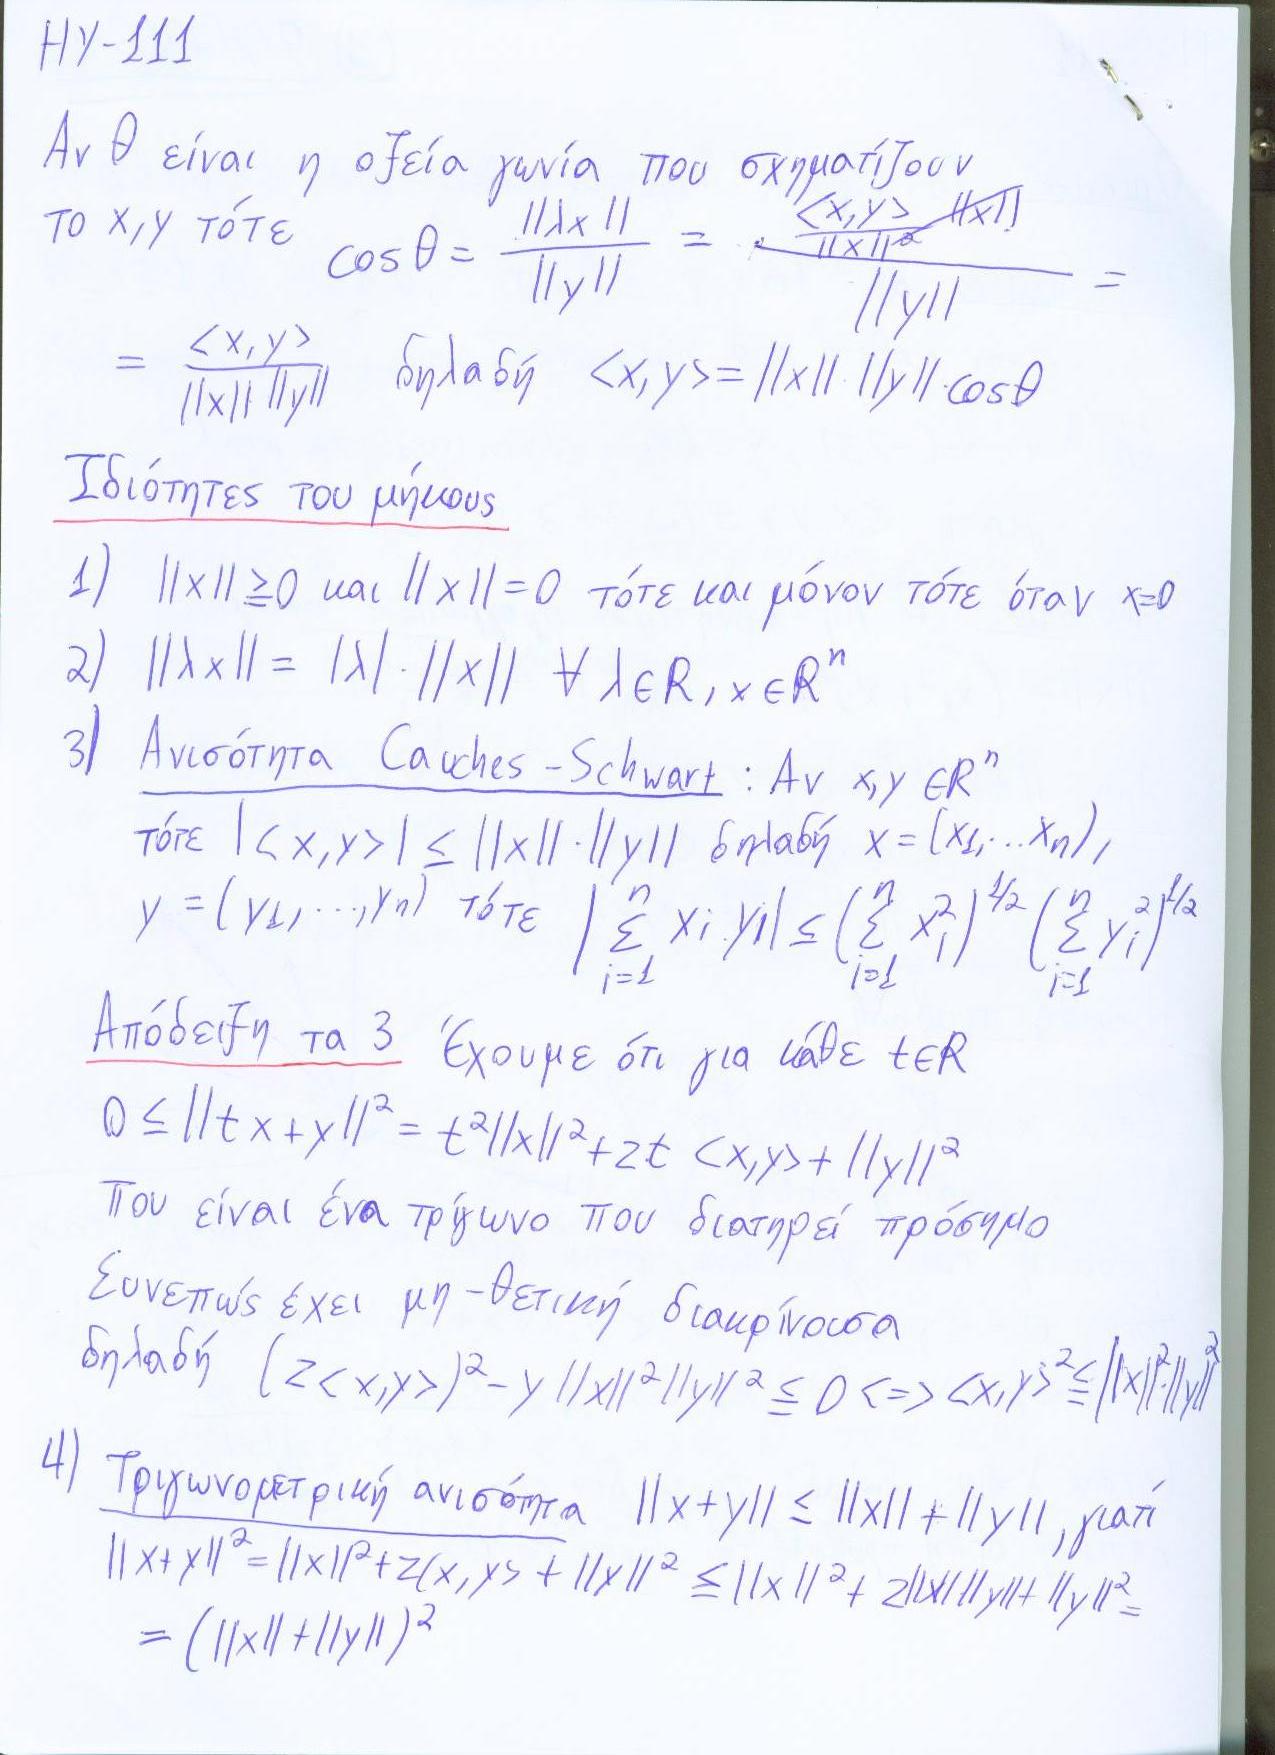 ΗΥ-111
Αν θ είναι η οξεία γωνία που σχηματίζουν
το x,y τότε cosθ = ||λx|| / ||y|| = (<x,y> / ||x||² ||x||) / ||y|| =
= <x,y> / ||x|| ||y|| δηλαδή <x,y> = ||x||·||y||·cosθ
Ιδιότητες του μήκους
1) ||x|| ≧ 0 και ||x|| = 0 τότε και μόνον τότε όταν x=0
2) ||λx|| = |λ|·||x|| ∀ λ∈R, x∈Rⁿ
3) Ανισότητα Cauches-Schwart : Αν x,y ∈Rⁿ
τότε |<x,y>| ≤ ||x||·||y|| δηλαδή x = (x₁,...xₙ),
y = (y₁,...,yₙ) τότε |Σⁿᵢ₌₁ xᵢ yᵢ| ≤ (Σⁿᵢ₌₁ xᵢ²)^1/2 (Σⁿᵢ₌₁ yᵢ²)^1/2
Απόδειξη τα 3 Έχουμε ότι για κάθε t∈R
0 ≤ ||tx+y||² = t²||x||² + 2t <x,y> + ||y||²
Που είναι ένα τρίγωνο που διατηρεί πρόσημο
Συνεπώς έχει μη-θετική διακρίνουσα
δηλαδή (2<x,y>)² - y ||x||² ||y||² ≦ 0 <=> <x,y>² ≦ ||x||²·||y||²
4) Τριγωνομετρική ανισότητα ||x+y|| ≤ ||x|| + ||y||, γιατί
||x+y||² = ||x||² + 2<x,y> + ||y||² ≤ ||x||² + 2||x|| ||y|| + ||y||² =
= (||x|| + ||y||)²